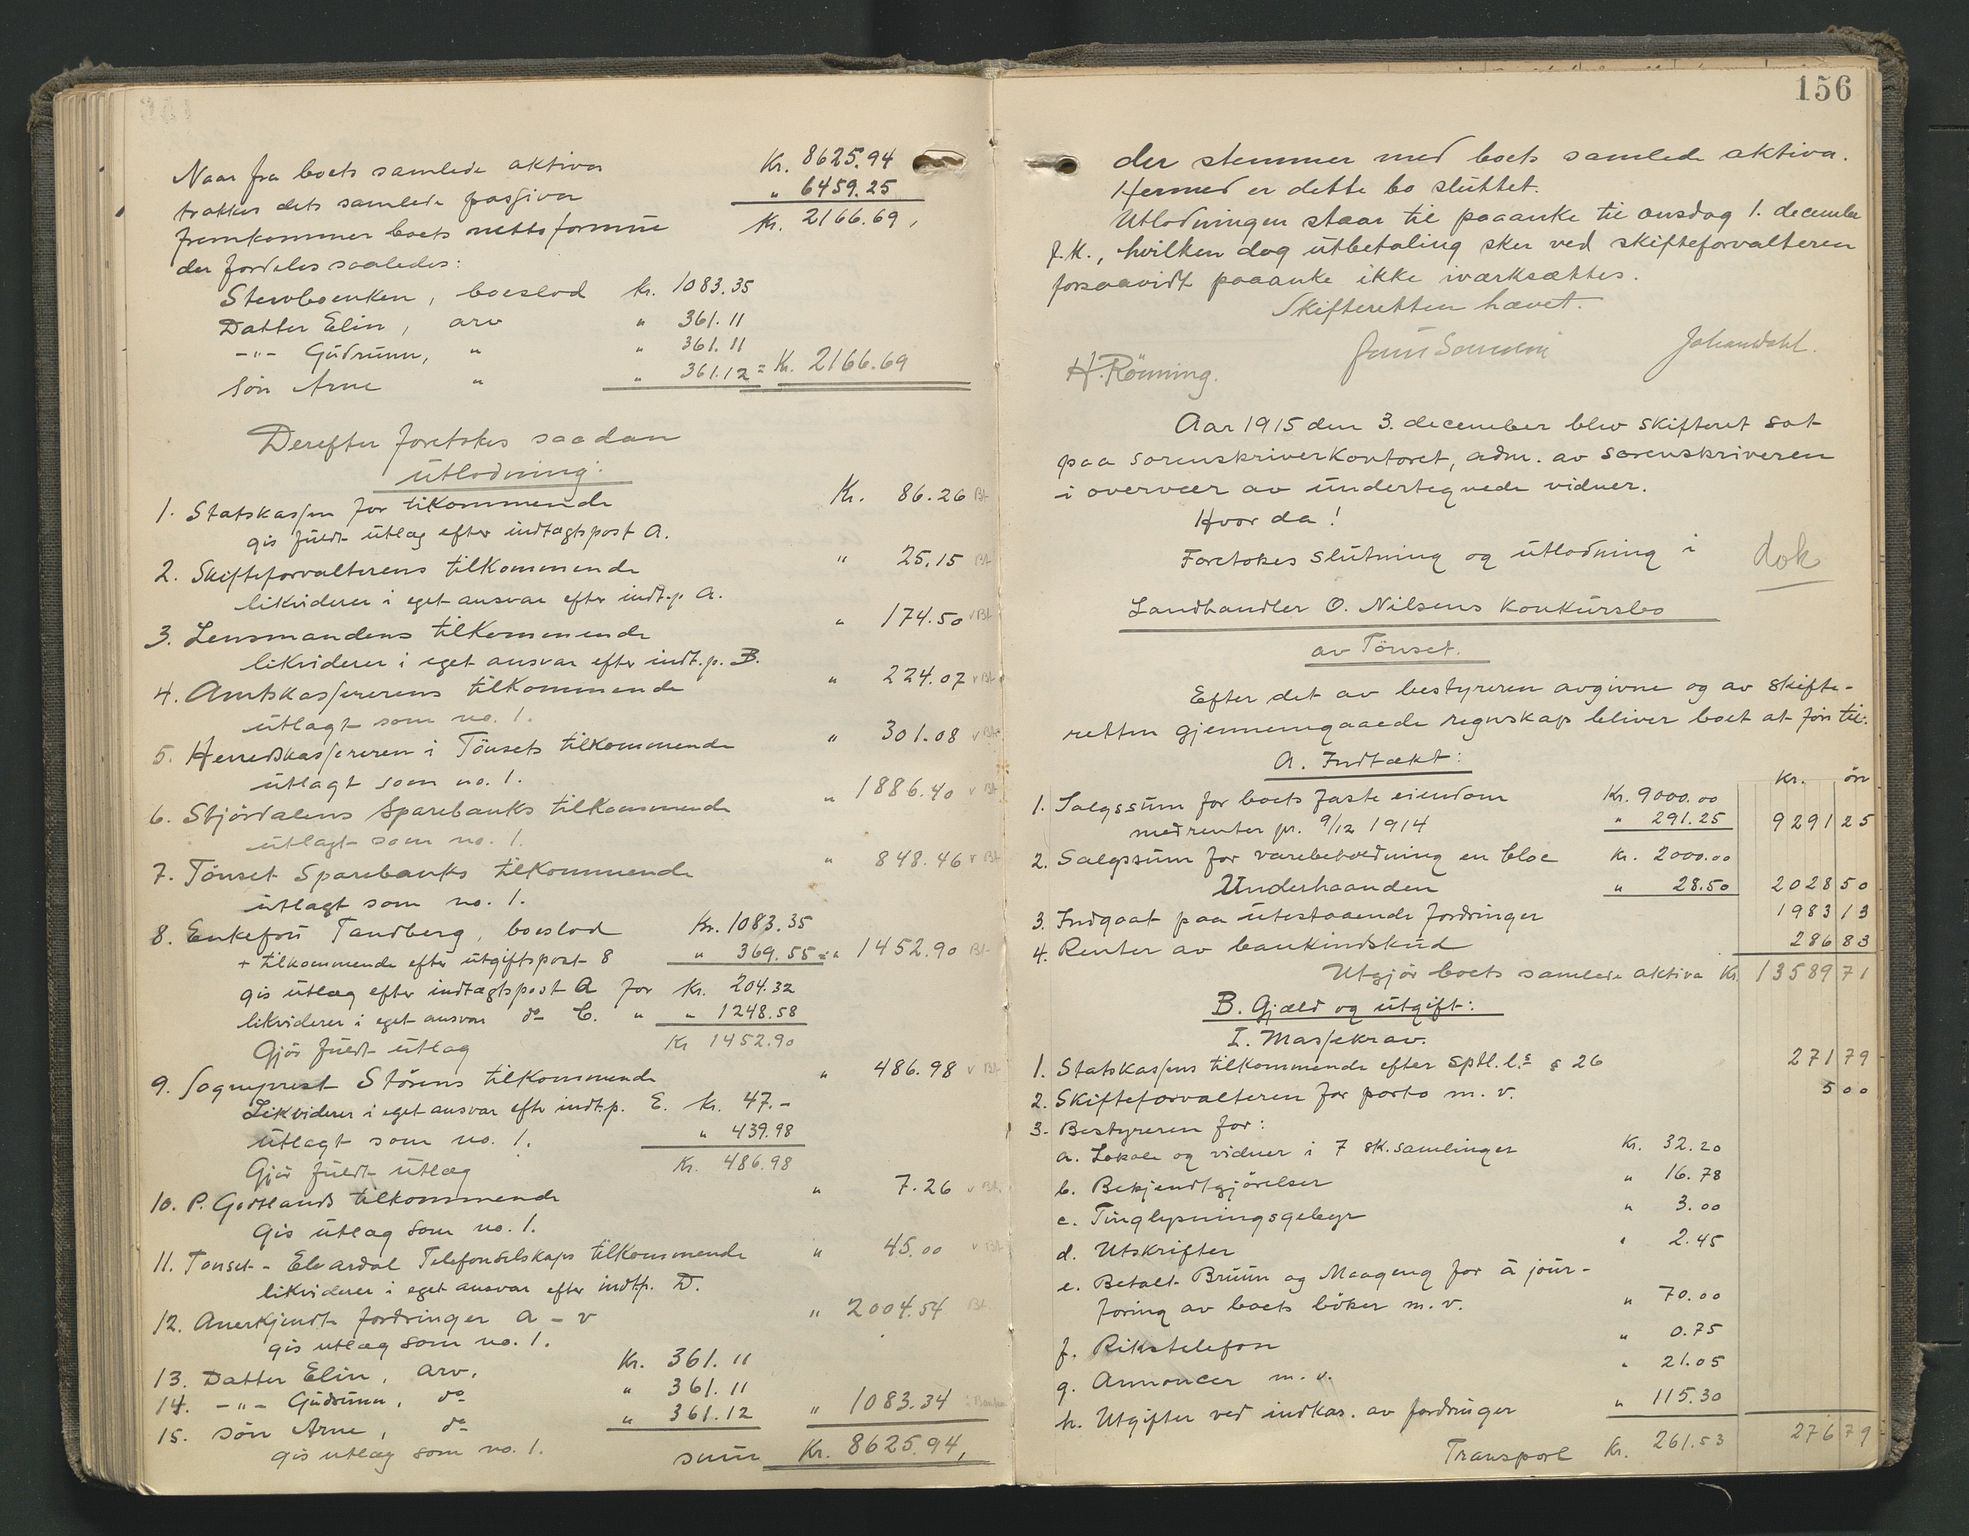 Naar fra boets samlede aktiva Kr. 8625.94
trækkes dets samlede passiva " 6459.25
fremkommer boets nettoformue Kr. 2166.69,
der fordeles saaledes:
Stervboenken, boeslod Kr. 1083.35
Datter Elin, arv " 361.11
-"- Gudrunn, " " 361.11
Søn Arne " " 361.12 = Kr. 2166.69
Derefter foretokes saadan
utlodning:
1. Statskassen for tilkommende Kr. 86.26 Bt
gis fuldt utlæg efter indtægtspost A.
2. Skifteforvalterens tilkommende " 25.15 Bt
likviderer i eget ansvar efter indt.p. A.
3. Lensmandens tilkommende " 174.50 v Bt
likviderer i eget ansvar efter indt.p. B.
4. Amtskassererens tilkommende " 224.07 v Bt
utlagt som no. 1.
5. Herredskassereren i Tönsets tilkommende " 301.08 v Bt
utlagt som no. 1.
6. Stjördalens Sparebanks tilkommende " 1886.40 v Bt
utlagt som no. 1.
7. Tönset Sparebanks tilkommende " 848.46 v Bt
utlagt som no. 1.
8. Enkefru Tandberg, boeslod Kr. 1083.35
+ tilkommende efter utgiftspost 8 " 369.55 = " 1452.90 Bt
gis utlæg efter indtægtspost A for Kr. 204.32
likviderer i eget ansvar do C. " " 1248.58
Gjør fuldt utlæg Kr 1452.90
9. Sogneprest Störens tilkommende " 486.98 v Bt
Likviderer i eget ansvar efter indt.p. E. Kr. 47.-
utlagt som no. 1. " 439.98
Gjør fuldt utlæg Kr. 486.98
10. P. Gotlands tilkommende " 7.26 v Bt
Gis utlæg som no. 1.
11. Tonset - Elvardal Telefonselskaps tilkommende " 45.00 v Bt
likviderer i eget ansvar efter indt.p. D.
12. Anerkjendte fordringer a - v " 2004.54 Bt.
gis utlæg som no. 1.
13. Datter Elin, arv, Kr. 361.11
14. -"- Gudrunn, do " 361.11
15. søn Arne, do " 361.12 " 1083.34
gis utlæg som no. 1. sum Kr. 8625.94,
156
der stemmer med boets samlede aktiva.
Hermed er dette bo sluttet.
Utlodningen staar til paaanke til onsdag 1. december
f.k., hvilken dag utbetaling sker ved skifteforvalteren
forsaavidt paaanke ikke iværksættes.
Skifteretten hævet.
H. Rönning. Johan Dahl.
Aar 1915 den 3. december blev skifteret sat
paa sorenskriverkontoret, adm. av sorenskriveren
i overvær av undertegnede vidner.
Hvor da!
Foretokes slutning og utlodning i dok
Landhandler O. Nilsens konkursbo
av Tönset.
Efter det av bestyreren avgivne og av skifte-
retten gjennemgaaede regnskap bliver boet at før til:
A. Indtækt:
Kr. öre
1. Salgssum for boets faste eiendom Kr. 9000.00
med renter pr. 9/12 1914 " 291.25 9291 25
2. Salgssum for varebeholdning en bloc Kr. 2000.00
Underhaanden " 28.50 2028 50
3. Indgaat paa utestaaende fordringer 1983 13
4. Renter av bankindskud 286 83
Utgjør boets samlede aktiva Kr. 13589 71
B. Gjæld og utgift:
I. Massekrav.
1. Statskassens tilkommende efter Sptl. l.s § 26 271 79
2. Skifteforvalteren for porto m. v. 5 00
3. Bestyreren for:
a. Lokale og vidner i 7 sk.samlinger Kr. 32.20
b. Bekjendtgjörelser " 16.78
c. Tinglysningsgebyr " 3.00
d. Utskrifter " 2.45
e. Betalt Bruun og Maageng for à jour-
föring av boets böker m. v. " 70.00
f. Rikstelefon " 0.75
g. Annoncer m. v. " 21.05
h. Utgifter ved indkas. av fordringer " 115.30
Transport Kr. 261.53 276 79